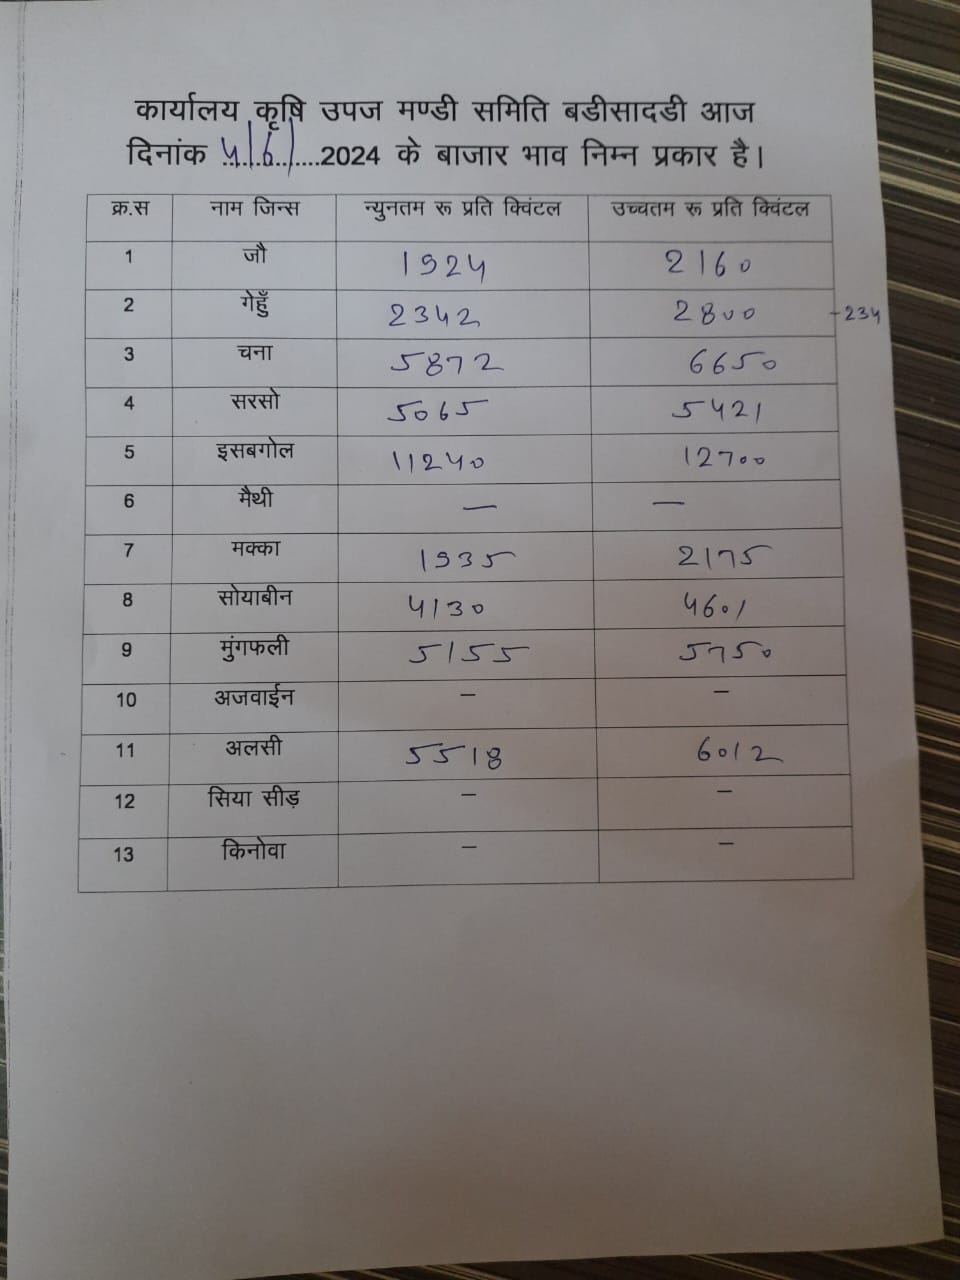 कार्यालय कृषि उपज मण्डी समिति बडीसादडी आज
दिनांक 4/6/......2024 के बाजार भाव निम्न प्रकार है।
क्र.स नाम जिन्स न्युनतम रू प्रति क्विंटल उच्चतम रू प्रति क्विंटल
1 जौ 1924 2160
2 गेहुँ 2342 2800 -234
3 चना 5872 6650
4 सरसो 5065 5421
5 इसबगोल 11240 12700
6 मैथी — —
7 मक्का 1935 2175
8 सोयाबीन 4130 4601
9 मुंगफली 5155 5750
10 अजवाईन – –
11 अलसी 5518 6012
12 सिया सीड़ – –
13 किनोवा – –